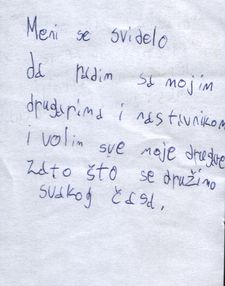 Meni se svidelo
da radim sa mojim
drugarima i nastavnikom
i volim sve moje drugare
Zato što se družimo
svakog časa.